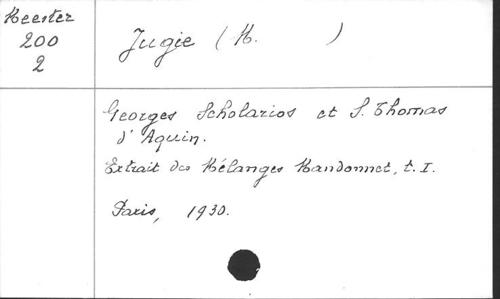 Meester
200
2
Jugie (M. )
Georges Scholarios et S. Thomas
d'Aquin.
Extrait des Mélanges Mandonnet, t. I.
Paris, 1930.